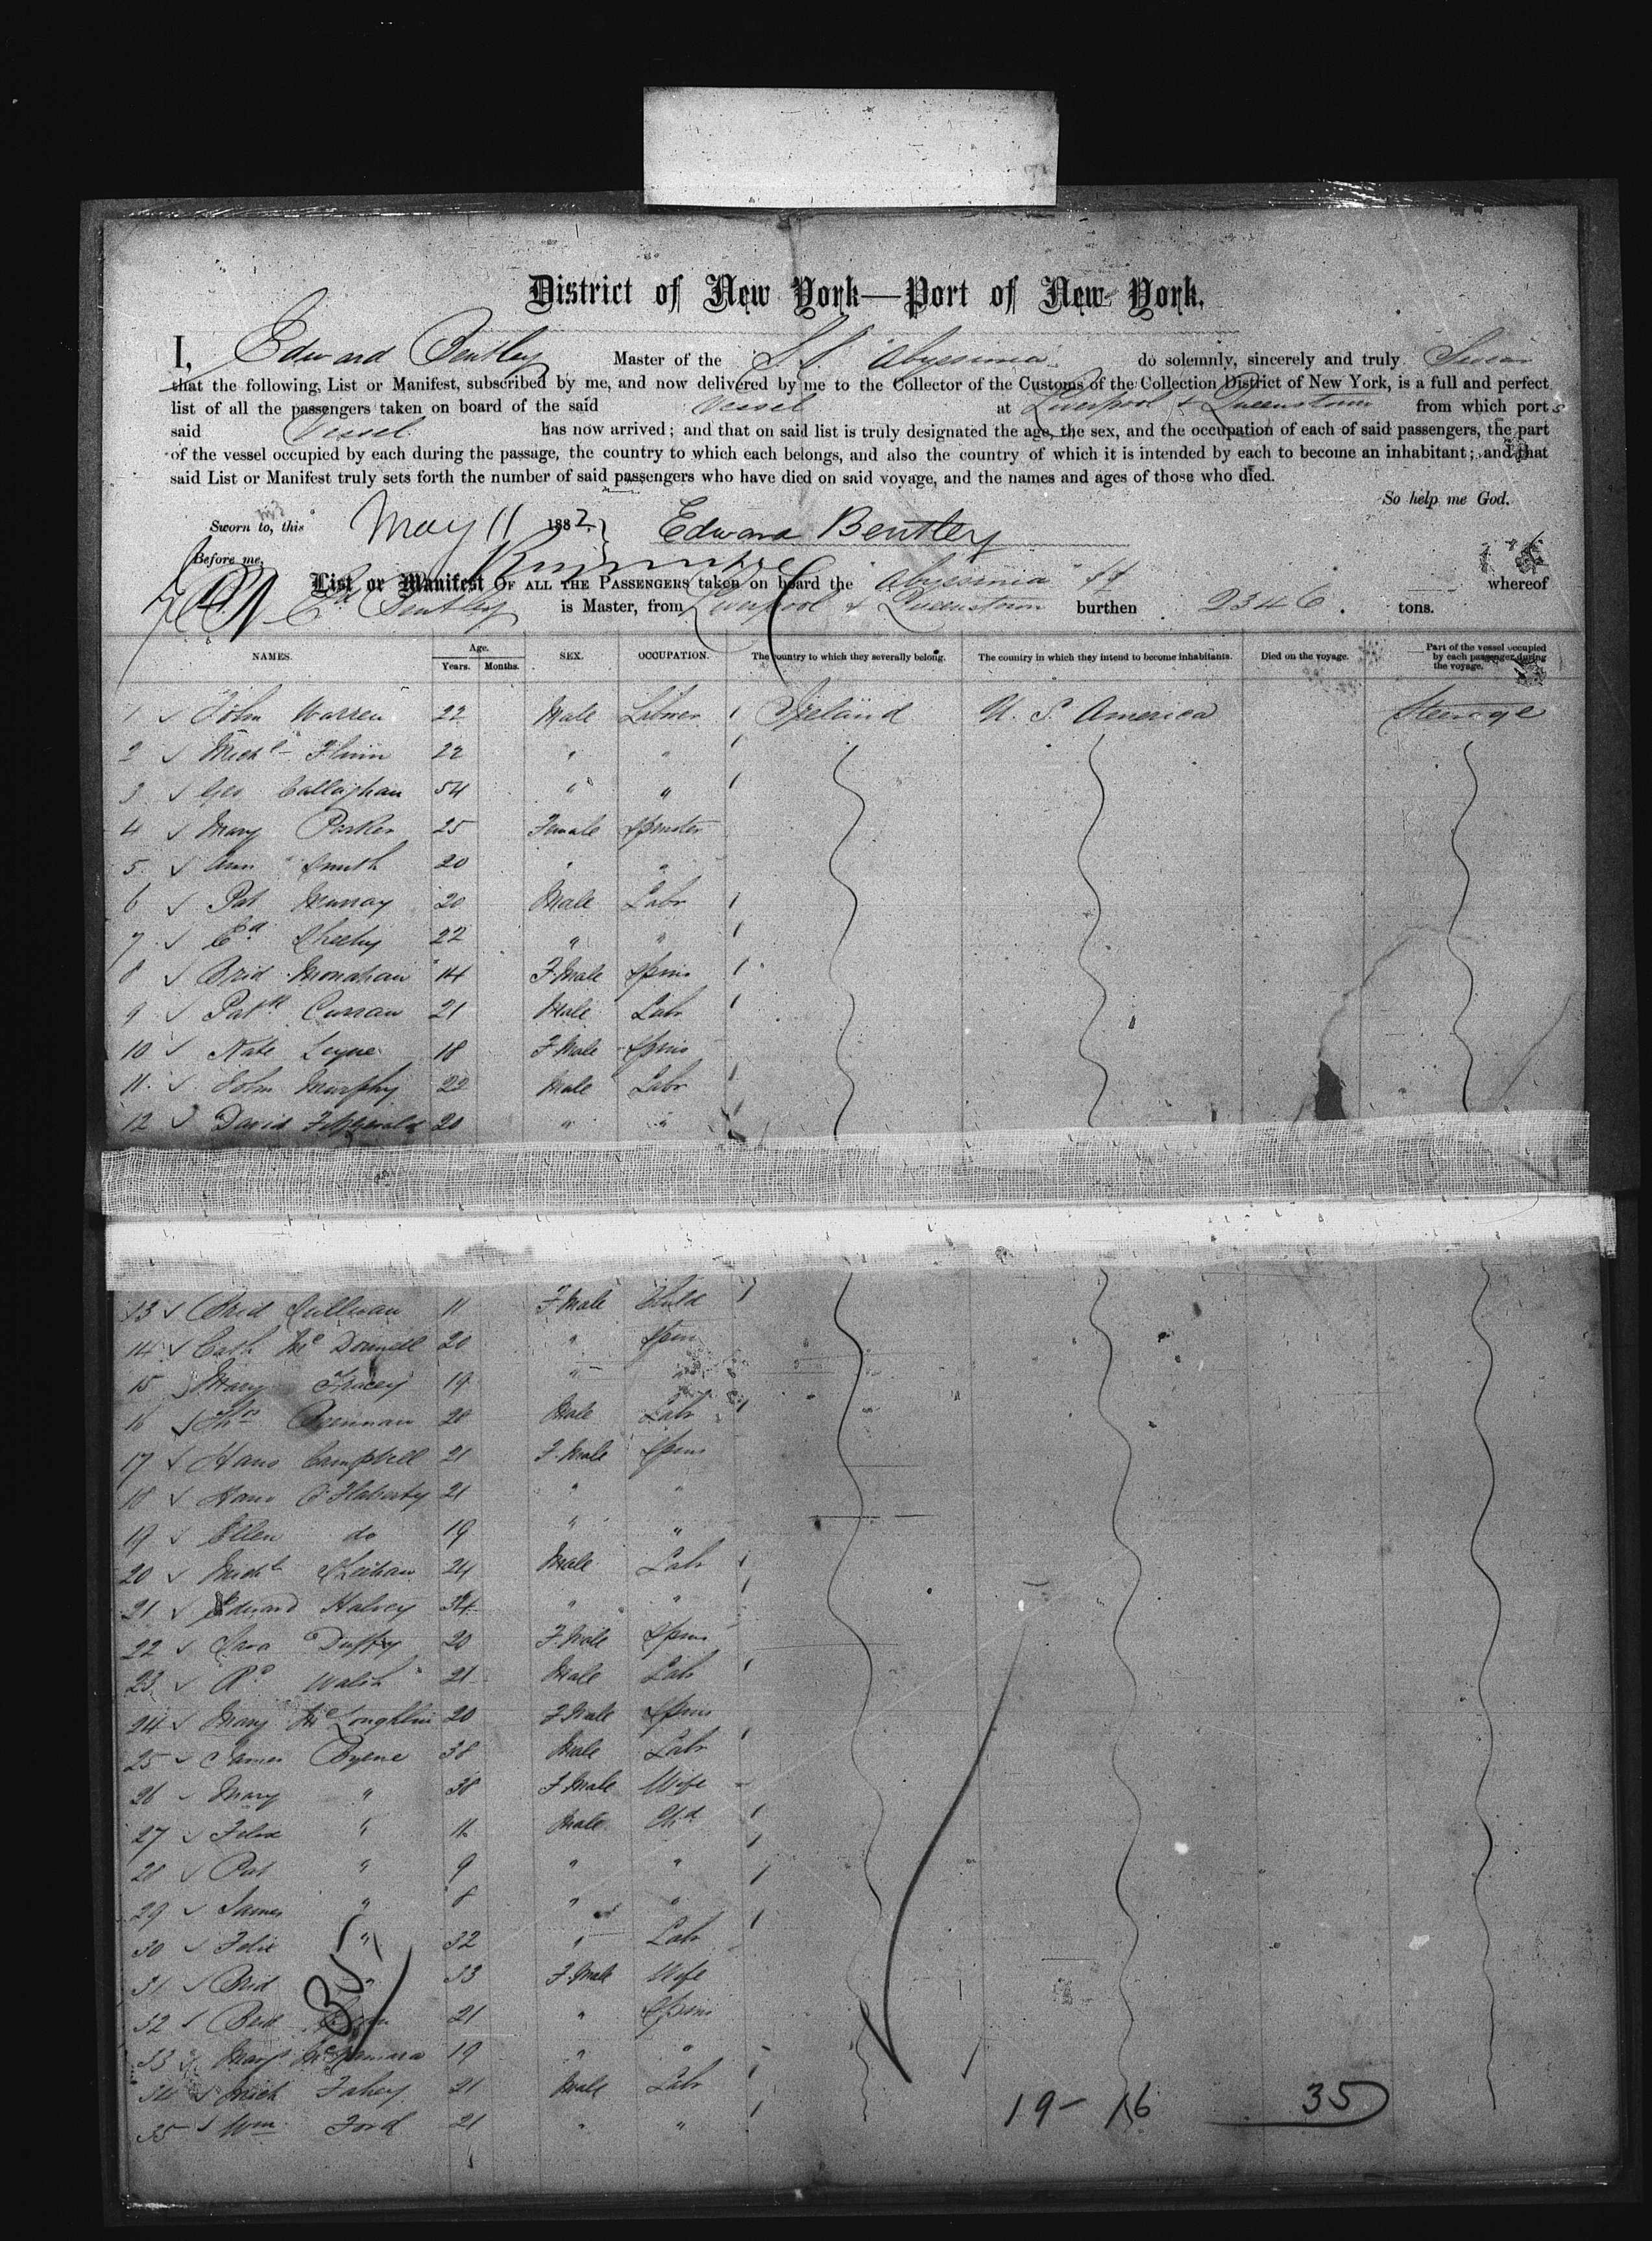 District of New York—Port of New York.
I, Edward Bentley Master of the S.S. Abyssinia do solemnly, sincerely and truly Swear
that the following List or Manifest, subscribed by me, and now delivered by me to the Collector of the Customs of the Collection District of New York, is a full and perfect
list of all the passengers taken on board of the said Vessel at Liverpool & Queenstown from which ports
said Vessel has now arrived; and that on said list is truly designated the age, the sex, and the occupation of each of said passengers, the part
of the vessel occupied by each during the passage, the country to which each belongs, and also the country of which it is intended by each to become an inhabitant; and that
said List or Manifest truly sets forth the number of said passengers who have died on said voyage, and the names and ages of those who died.
So help me God.
Sworn to, this May 11 1882. Edward Bentley
Before me,
List or Manifest OF ALL THE PASSENGERS taken on board the "Abyssinia" whereof
Ed Bentley is Master, from Liverpool & Queenstown burthen 2346. tons.
NAMES. Age. Years. Months. SEX. OCCUPATION. The country to which they severally belong. The country in which they intend to become inhabitants. Died on the voyage. Part of the vessel occupied by each passenger during the voyage.
1 John Warren 22 Male Labourer Ireland U. S. America Steerage
2 Michl Flinn 22 " "
3 Geo Callaghan 54 " "
4 Mary Parker 25 Female Spinster
5 Ann Smith 20 " "
6 Pat Murray 20 Male Labr
7 Ed Sheehy 22 " "
8 Brid Monahan 14 F.Male Spins
9 Patk Curran 21 Male Labr
10 Kate Lyne 18 F.Male Spins
11 John Murphy 22 Male Labr
12 David Fitzgerald 20 " "
13 Brid Sullivan 11 F.Male Child
14 Cath McDonnell 20 " Spin
15 Mary Tracey 19 " "
16 Thos Brennan 28 Male Labr
17 Hano Campbell 21 F.Male Spins
18 Hano O'Flaherty 21 " "
19 Ellen do 19 " "
20 Michl Sheehan 24 Male Labr
21 Edward Halvey 34 " "
22 Sara Duffy 20 F.Male Spins
23 Rd Walsh 21 Male Labr
24 Mary McLoughlin 20 F.Male Spins
25 James Byrne 38 Male Labr
26 Mary " 38 F.Male Wife
27 Felix " 11 Male Chd
28 Pat " 9 " "
29 James " 8 " "
30 Felix " 32 " Labr
31 Brid " 33 F.Male Wife
32 Brid 21 " Spins
33 Mary McNamara 19 " "
34 Mich Fahey 21 Male Labr
35 Wm Ford 21 " "
19 - 16 35